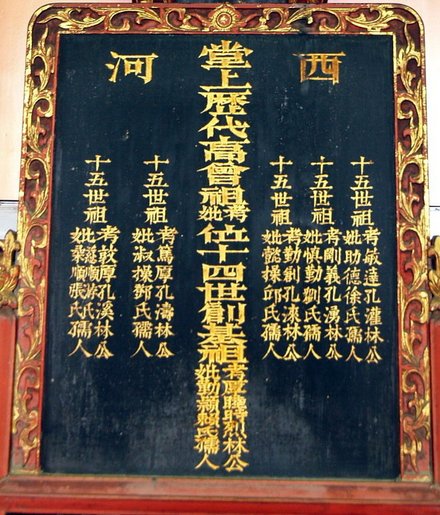 西河
十五世祖
考敏達孔灌林公
妣助德徐氏孺人
十五世祖
考剛義孔湧林公
妣慎勤劉氏孺人
十五世祖
考勤創孔溱林公
妣懿操邱氏孺人
堂上歷代高曾祖考妣位十四世創基祖
考 時烈林公
妣勤 賴氏孺人
十五世祖
考篤厚孔濤林公
妣淑操鄧氏孺人
十五世祖
考敦厚孔溪林公
妣懿順游氏
妣柔順張氏孺人